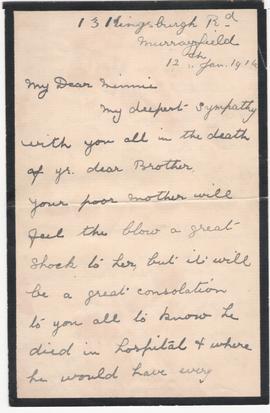 13 Kingsburgh Rd
Murrayfield
12th Jan. 1916
My Dear Minnie
My deepest sympathy
with you all in the death
of yr. dear Brother,
your poor mother will
feel the blow a great
shock to her, but it will
be a great consolation
to you all to know he
died in hospital & where
he would have every